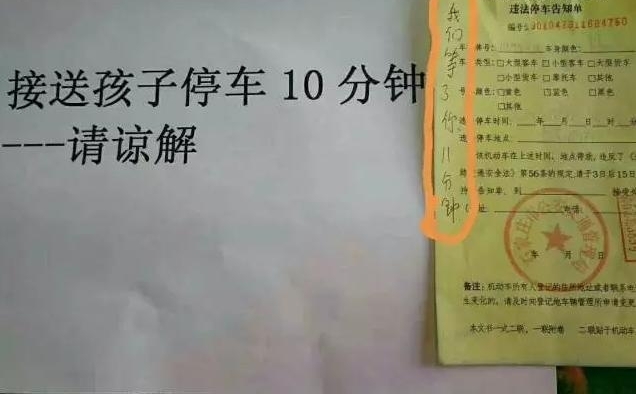 接送孩子停车10分钟
---请谅解
我们等了你11分钟
违法停车告知单
编号:
车牌号: 车身颜色:
类型:□大型客车 □小型客车 □大型货车
□小型货车 □摩托车 □其他
号 颜色:□黄色 □蓝色 □黑色
□其他
停车时间: 年 月 日 时 分
停车地点:
该机动车在上述时间、地点停放,违反了《
通安全法》第56条的规定,请于3日后15日
告知单、到 接受
址: 电话:
年 月 日
备注:机动车所有人登记的住所地址或者联系电
生变化的,请及时向登记地车辆管理所申请变更
本文书一式二联,一联附卷 二联贴于机动车